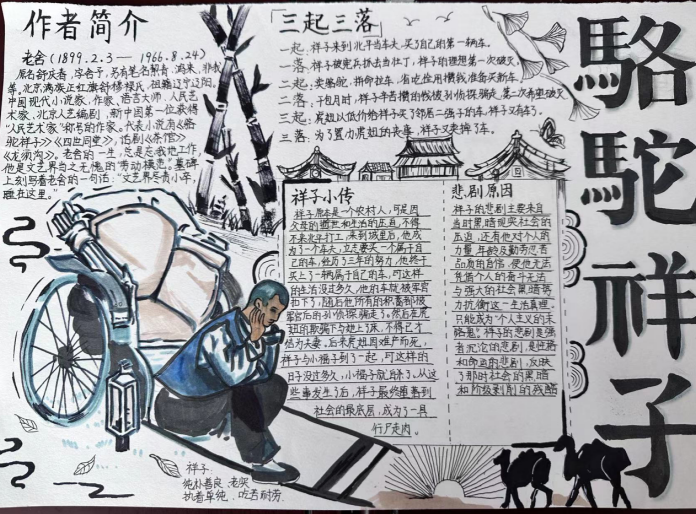 作者简介
老舍(1899.2.3—1966.8.24)
原名舒庆春,字舍予,另有笔名絜青、鸿来、非我
等。北京满族正红旗舒穆禄氏,祖籍辽宁辽阳,
中国现代小说家、作家、语言大师、人民艺
术家、北京人艺编剧,新中国第一位获得
“人民艺术家”称号的作家。代表小说有《骆
驼祥子》《四世同堂》,话剧《茶馆》
《龙须沟》。老舍的一生,总是在忘我地工作,
他是文艺界当之无愧的“劳动模范”。墓碑
上刻写着老舍的一句话:“文艺界尽责小卒,
睡在这里。”
三起三落
一起:祥子来到北平当车夫,买了自己的第一辆车。
一落:祥子被宪兵抓去当壮丁,祥子的理想第一次破灭。
二起:卖骆驼,拼命拉车,省吃俭用攒钱准备买新车。
二落:干包月时,祥子辛苦攒的钱被孙侦探骗走,第二次希望破灭
三起:虎妞以低价给祥子买了邻居二强子的车,祥子又有车了。
三落:为了置办虎妞的丧事,祥子又卖掉了车。
駱駝祥子
祥子小传
祥子原本是一个农村人,可是因
父母的逝世和生活的压迫,不得
不来北平打工,来到城里后,他成
为了一个车夫,立志要买一个属于自
己的车,经历了三年的努力,他终于
买上了一辆属于自己的车,可这样
的生活没过多久,他的车就被军官
扣下了,随后他所有的积蓄都被
军官后的孙侦探骗走了。然后在虎
妞的欺骗下与她上了床,不得已才
结为夫妻,后来虎妞因难产而死,
祥子与小福子到了一起,可这样的
日子没过多久,小福子就自杀了。从这
些事发生了后,祥子最终堕落到
社会的最底层,成为了一具
行尸走肉。
悲剧原因
祥子的悲剧主要来自
当时黑暗现实社会的
压迫,还有他对个人的
力量
凭借个人的奋斗无法
与强大的社会黑暗势
力抗衡这一生活真理。
只能成为个人主义的末
路鬼。祥子的悲剧是强
者沉沦的悲剧,是性格
和命运的悲剧,反映
了那时社会的黑暗
和阶级剥削的残酷
祥子:
纯朴善良、老实
执着单纯、吃苦耐劳